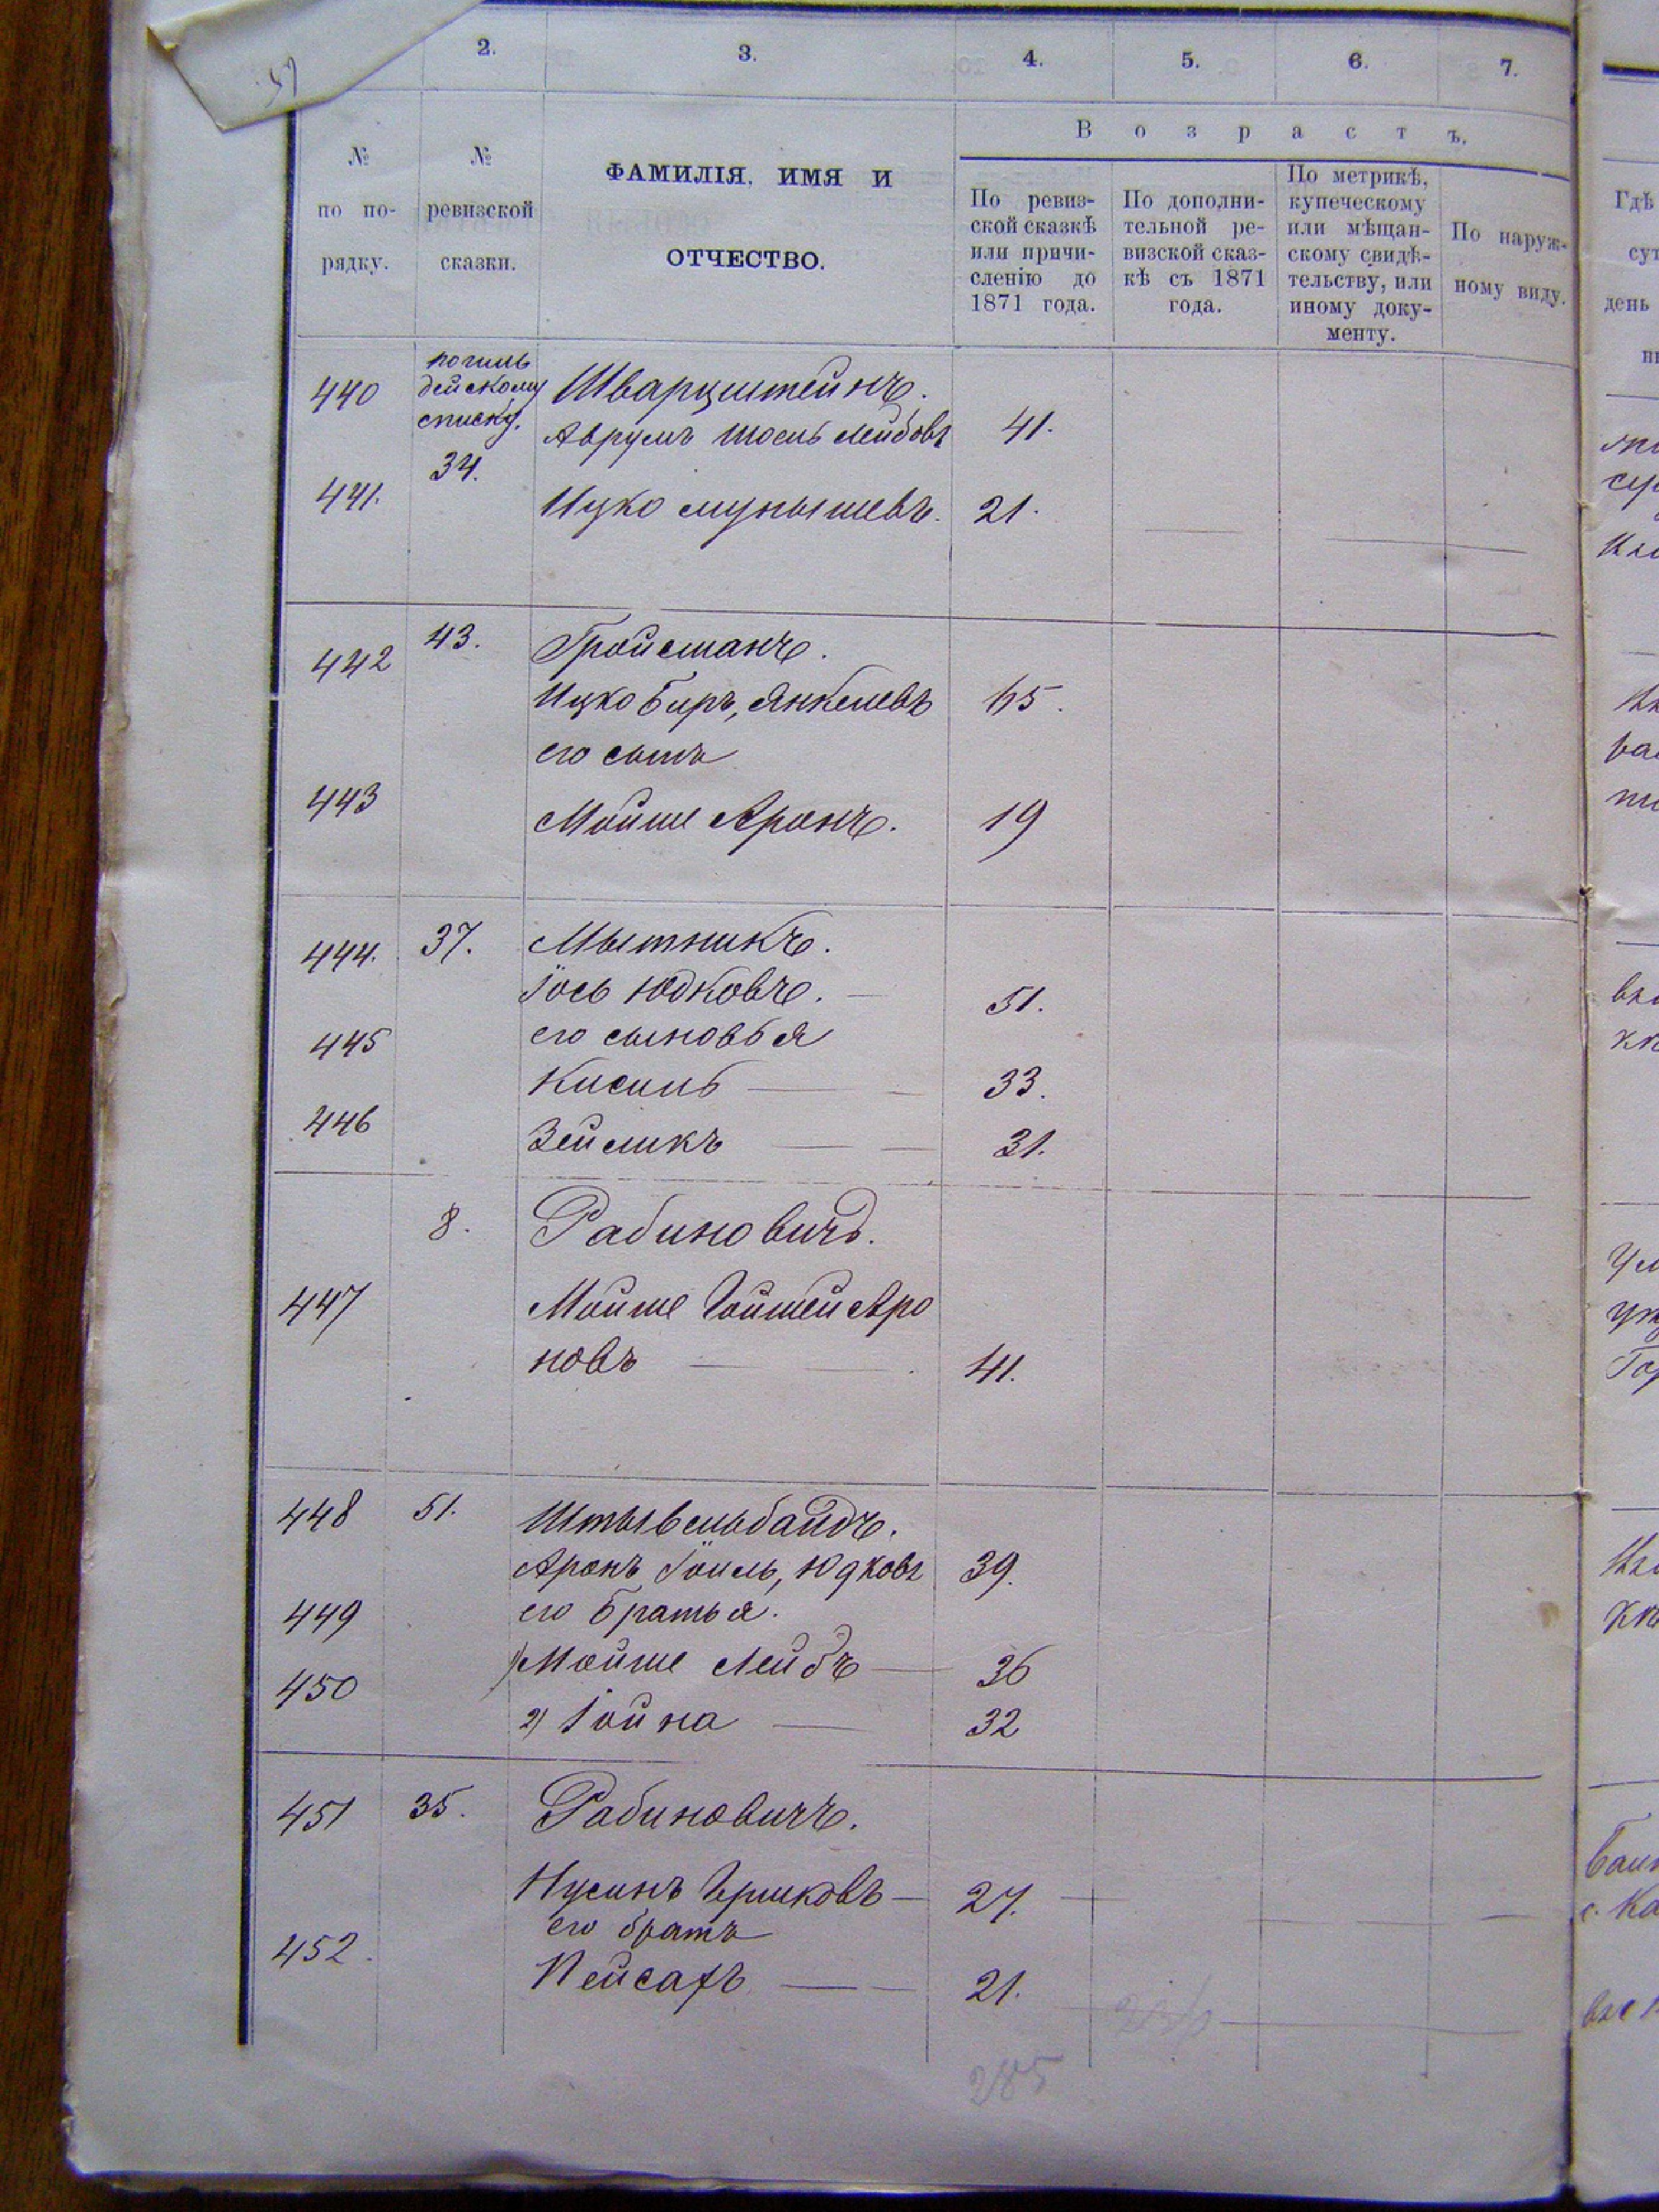 2. 3. 4. 5. 6. 7.
В о з р а с т ъ.
№ по по-рядку.
№ ревизской сказки.
ФАМИЛІЯ, ИМЯ И
ОТЧЕСТВО.
По ревиз-
ской сказкѣ
или причи-
сленію до
1871 года.
По дополни-
тельной ре-
визской сказ-
кѣ съ 1871
года.
По метрикѣ,
купеческому
или мѣщан-
скому свидѣ-
тельству, или
иному доку-
менту.
По наруж-
ному виду.
Гдѣ
сут
день
440 Шварцштейнъ.
дейскому
списку.
34.
Аврумъ Шоель Лейбовъ 41.
441. Ицко Мунышевъ. 21.
442 43. Гройсманъ.
Ицко Беръ, Янкелевъ 65.
его сынъ
443 Мойше Аронъ. 19
444. 37. Мытникъ.
Іось Юдковъ. 51.
445 его сыновья
Кисиль 33.
446 Зейликъ 31.
8. Рабиновичъ.
447 Мойше Гойшей Аро
новъ 41.
448 51. Штывельбандъ.
Аронъ Іоиль, Юдковъ 39.
449 его братья.
1) Мойше Лейбъ 36
450 2) Іойна 32
451 35. Рабиновичъ.
Нусинъ Гершковъ 27.
его братъ
452. Пейсахъ 21.
285